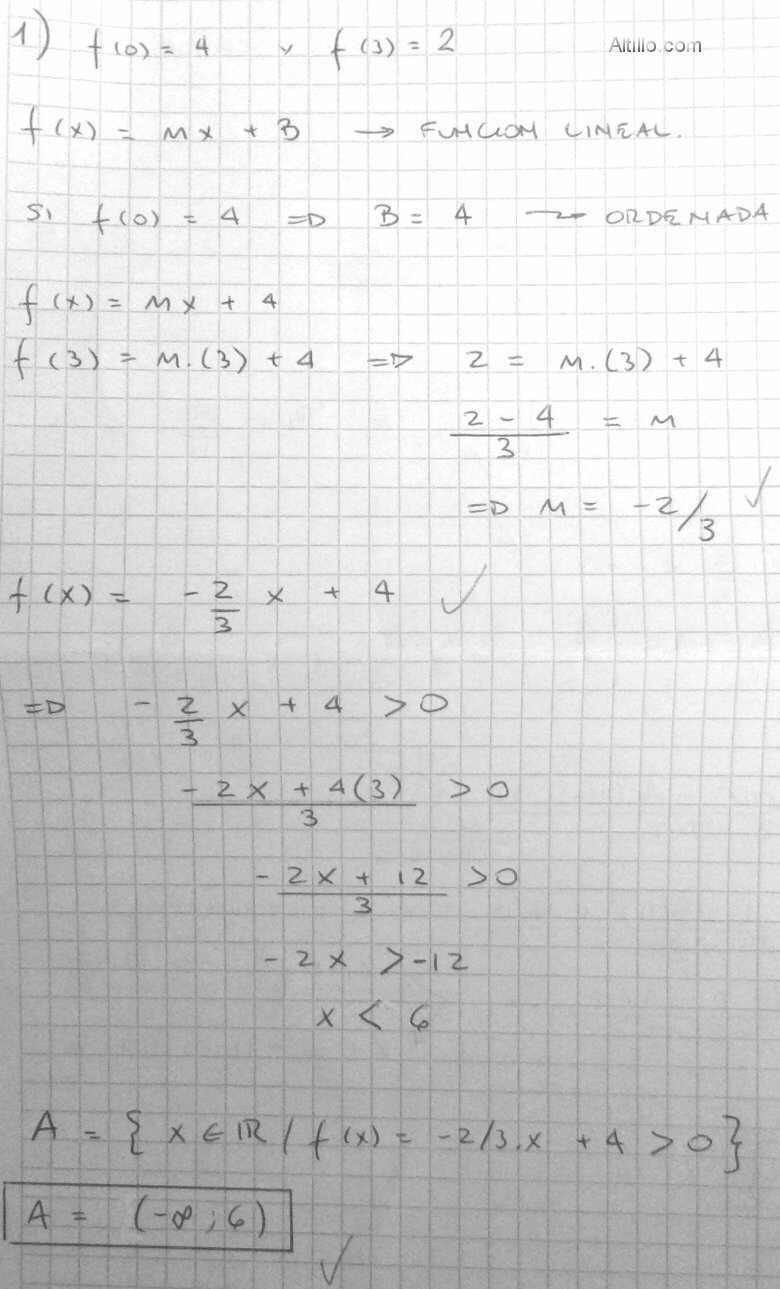 1) f(0) = 4 y f(3) = 2
Altillo.com
f(x) = mx + B → FUNCION LINEAL.
Si f(0) = 4 => B = 4 → ORDENADA
f(x) = mx + 4
f(3) = m.(3) + 4 => 2 = m.(3) + 4
2 - 4 = m
3
=> m = -2/3 ✓
f(x) = - 2/3 x + 4 ✓
=> - 2/3 x + 4 > 0
- 2x + 4(3) > 0
3
- 2x + 12 > 0
3
- 2x > -12
x < 6
A = { x ∈ IR / f(x) = -2/3.x + 4 > 0 }
A = (-∞ ; 6)
✓